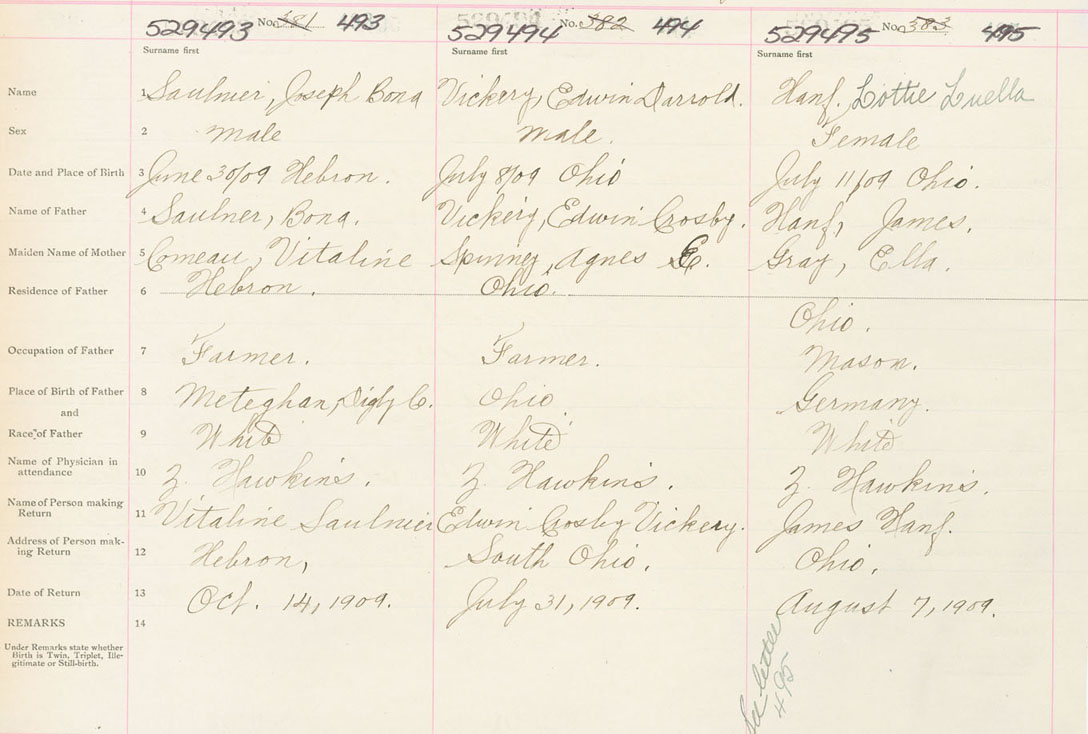 529493 No. 381 493 529494 No. 382 494 529495 No. 383 495
Surname first Surname first Surname first
Name 1 Saulnier, Joseph Bona Vickery, Edwin Darrold. Hanf, Lottie Luella
Sex 2 male male. Female
Date and Place of Birth 3 June 30/09 Hebron. July 8/09 Ohio July 11/09 Ohio.
Name of Father 4 Saulner, Bona. Vickery, Edwin Crosby. Hanf, James.
Maiden Name of Mother 5 Comeau, Vitaline Spinney, Agnes E. Gray, Ella.
Residence of Father 6 Hebron. Ohio. Ohio.
Occupation of Father 7 Farmer. Farmer. Mason.
Place of Birth of Father 8 Meteghan, Digby C. Ohio Germany.
and
Race of Father 9 White White White
Name of Physician in
attendance 10 Z. Hawkins. Z. Hawkins. Z. Hawkins.
Name of Person making
Return 11 Vitaline Saulnier Edwin Crosby Vickery. James Hanf.
Address of Person mak-
ing Return 12 Hebron, South Ohio. Ohio.
Date of Return 13 Oct. 14, 1909. July 31, 1909. August 7, 1909.
REMARKS 14
Under Remarks state whether
Birth is Twin, Triplet, Ille-
gitimate or Still-birth.
letter
495